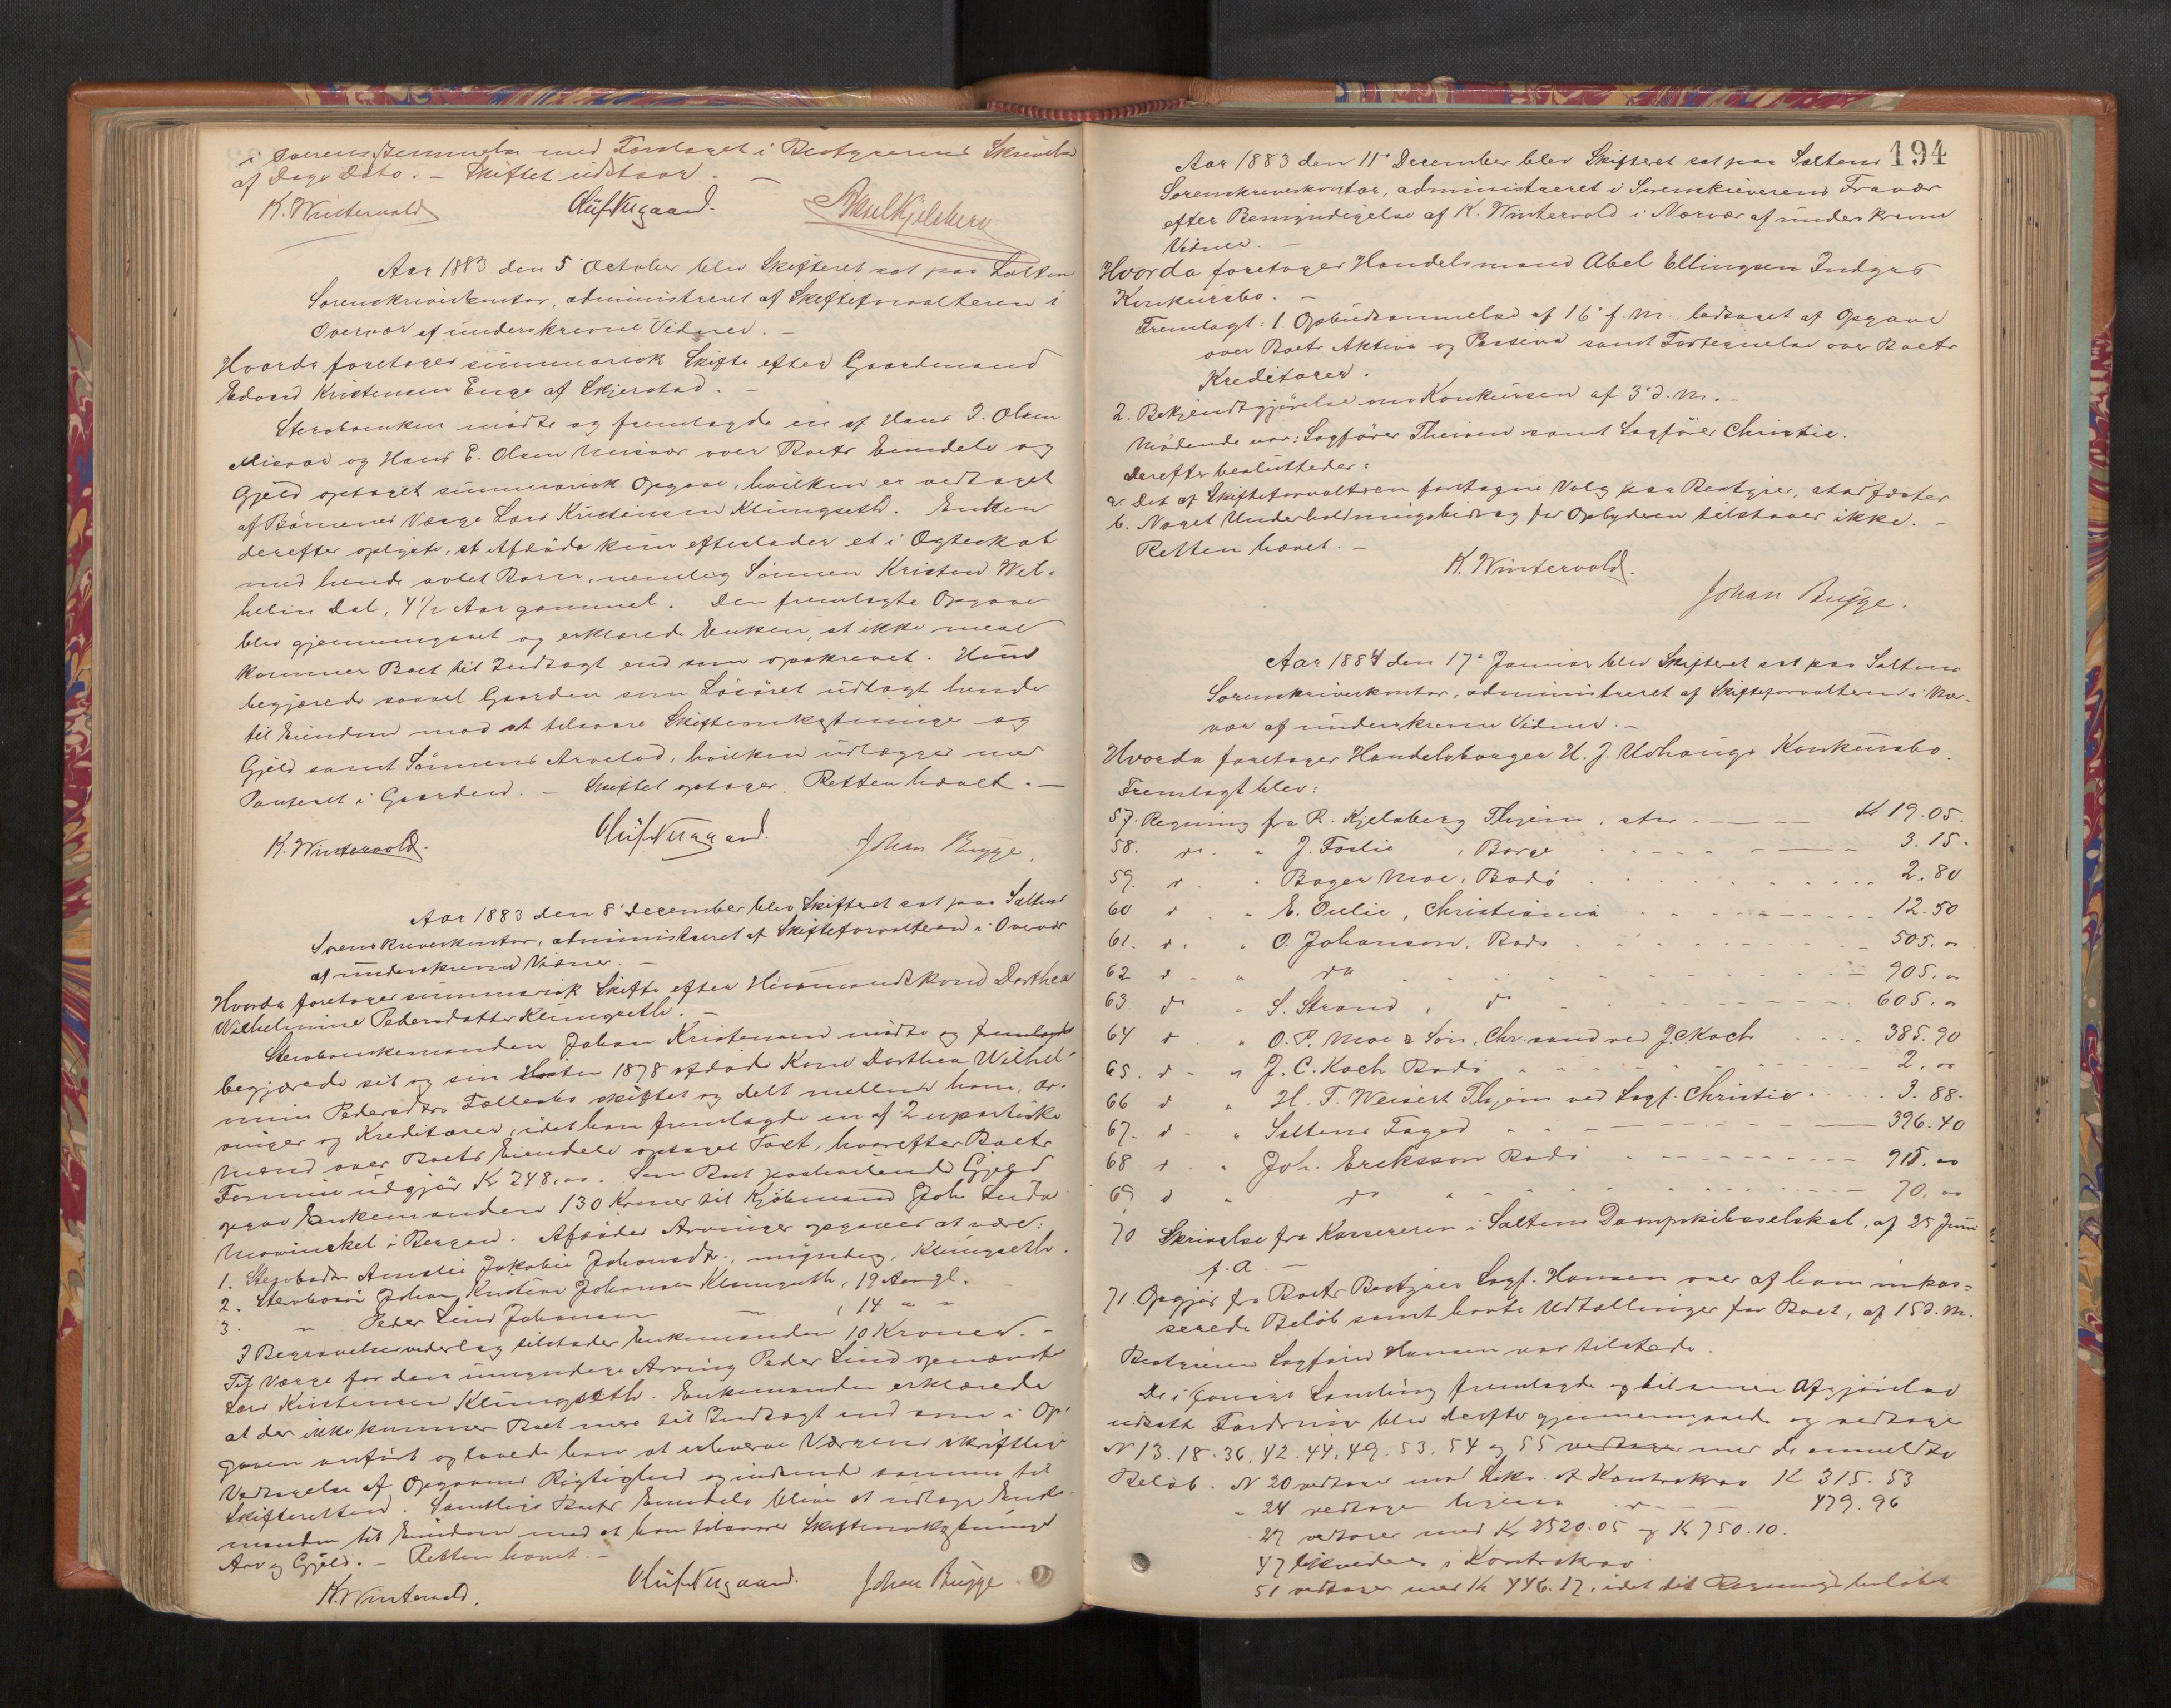 i Overensstemmelse med Forslaget i Bestyrerens Skrivelse
af Dags Dato. – Skiftet udstaar. –
K. Wintervold Oluf Aagaard. Axel Kjelsberg
Aar 1883 den 5' October blev Skifteret sat paa Salten
Sorenskriverkontor, administreret af Skifteforvalteren i
Overvær af underskrevne Vidner. –
Hvorda foretages summarisk Skifte efter Gaardmand
Edvard Kristensen Enge af Skjerstad. –
Sterboenken mødte og fremlagde en af Hans J. Olsen
Misvær og Hans E. Olsen Misvær over Boets Eiendele og
Gjeld optaget summarisk Opgave, hvilken er vedtaget
af Børnenes Værge Lars Kristensen Klungseth. Enken
derefter oplyste, at Afdøde kun efterlader et i Ægteskab
med hende avlet Barn, nemlig Sønnen Kristen Wil-
helm Dal, 4 1/2 Aar gammel. Den fremlagte Opgave
blev gjennemgaaet og erklærede Enken, at ikke mere
kommer Boet til Indtægt end som opskrevet. Hun
begjærede saavel Gaarden som Løsøret udlagt hende
til Eiendom mod at tilsvare Skifteomkostninger og
Gjeld samt Sønnens Arvelod, hvilken udlægges med
Panteret i Gaarden. – Skiftet optages. Retten hævet. –
K. Wintervold. Oluf Aagaard. Johan Bugge.
Aar 1883 den 8' December blev Skifteret sat paa Saltens
Sorenskriverkontor, administreret af Skifteforvalteren i Overvær
af underskrevne Vidner. –
Hvorda foretages summarisk Skifte efter Huusmandskone Dorthea
Wilhelmine Pedersdatter Klungseth. –
Sterboenkemanden Johan Kristensen mødte og fremlagde
begjærede sit og sin Høsten 1878 afdøde Kone Dorthea Wilhel-
mine Pedersdtrs Fællesbo skiftet og delt mellem ham, Ar-
vinger og Kreditorer, idet han fremlagde en af 2 upartiske
Mænd over Boets Eiendele optaget Taxt, hvorefter Boets
Formue udgjør Kr 248,00. Som Boet paahvilende Gjeld
opgav Enkemanden 130 Kroner til Kjøbmand Joh Luds
Mowinckel i Bergen. Afdødes Arvinger opgaves at være:
1. Sterbodtr Amalie Jakobie Johansdtr., myndig, Klungseth.
2. Sterbosøn Johan Kristian Johansen Klungseth, 19 Aar gl.
3. " Peder Lind Johansen – , 14 " "
I Begravelsesvederlag tilstodes Enkemanden 10 Kroner. –
Til Værge for den umyndige Arving Peder Lind opnævnes
Lars Kristensen Klungseth. Enkemanden erklærede
at der ikke kommer Boet mere til Indtægt end som i Op-
gaven anført og lovede han at erhverve Værgens skriftlige
Vedtagelse af Opgavens Rigtighed og indsende samme til
Skifteretten. Samtlige Boets Eiendele blive at udlægge Enke-
manden til Eiendom mod at han tilsvarer Skifteomkostninger
Arv og Gjeld. – Retten hævet. –
K. Wintervold. Oluf Aagaard. Johan Bugge.
194
Aar 1883 den 11' December blev Skifteret sat paa Saltens
Sorenskriverkontor, administreret i Sorenskriverens Fravær
efter Bemyndigelse af K. Wintervold i Nærvær af underskrevne
Vidner. –
Hvorda foretages Handelsmand Abel Ellingsen Indyrs
Konkursbo. –
Fremlagt: 1. Opbudsanmeldelse af 16' f. M. ledsaget af Opgave
over Boets Aktiva og Passiva samt Fortegnelse over Boets
Kreditorer.
2. Bekjendtgjørelse om Konkursen af 3' d. M. –
Mødende var: Sagfører Thesen samt Sagfører Christie.
Derefter besluttedes:
a. Det af Skifteforvaltren foretagne Valg paa Bestyrer, stadfæstes
b. Noget Underholdningsbidrag for Opbyderen tilstaaes ikke. –
Retten hævet. –
K. Wintervold.
Johan Bugge.
Aar 1884 den 17' Januar blev Skifteret sat paa Saltens
Sorenskriverkontor, administreret af Skifteforvalteren i Nær-
vær af underskrevne Vidner. –
Hvorda foretages Handelsborger H. J. Udhaugs Konkursbo.
Fremlagt blev:
57. Regning fra R. Kjelsberg Thjem, stor – – – Kr 19.05.
58. do. " J. Foslie , Borge 3.15.
59. d. " Bager Moe, Bodø 2.80
60 d. " E. Oulie, Christiania 12.50
61. d. " O. Johansen, Bodø 505,00
62 d " do 905,00
63. do " S. Strand, do 605,00
64 d " O. P. Moe & Søn, Chr.sand ved J.C.Koch 385.90
65. d " J. C. Koch Bodø 2,00
66 d " H. F. Weisert Thjem ved Sagf. Christie 3.88.
67. d " Saltens Foged 396.40
68 d. " Joh. Eriksson Bodø 915,00
69 d " do 70,00
70 Skrivelse fra Kassereren i Saltens Dampskibsselskab, af 25 Juni
f. A. –
71. Opgjør fra Boets Bestyrer Sagf. Hansen over af ham inkas=
serede Beløb samt havte Udtællinger for Boet, af 15 d. M.
Bestyreren Sagfører Hansen var tilstede.
De i forrige Samling fremlagde og til senere Afgjørelse
udsatte Fordringer blev derefter gjennemgaaede og vedtages
N 13. 18. 36, 42. 44. 49. 53. 54 og 55 vedtages med de anmeldte
Beløb. N 20 vedtages mod Likv. af Kontrakrav K 315. 53
" 24 vedtages ligesaa d – – 479. 96
27 vedtages med Kr 2520.05 og Kr 750.10.
47 likvideres i Kontrakrav
51 vedtages med Kr 446.17, idet det Regningsbeløbet